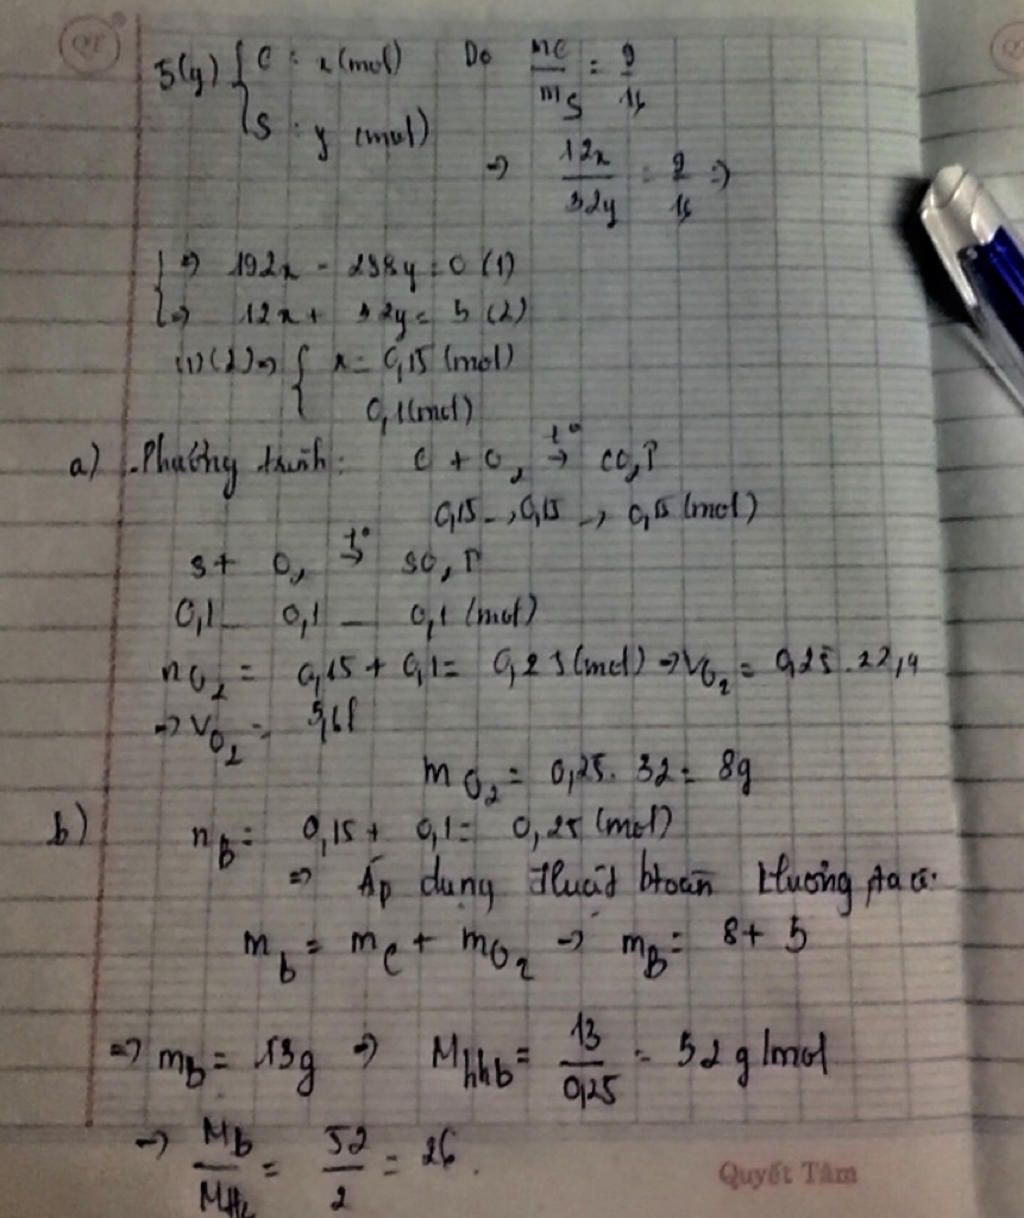 QT
5(g) { C : x (mol)   Do mC/mS = 9/16
S : y (mol)
=> 12x/32y = 9/16 =>
{ => 192x - 288y = 0 (1)
=> 12x + 32y = 5 (2)
(1)(2) => { x = 0,15 (mol)
0,1 (mol)
a) . Phương trình: C + O2 -t°-> CO2↑
0,15 -> 0,15 -> 0,15 (mol)
S + O2 -t°-> SO2↑
0,1 _ 0,1 _ 0,1 (mol)
nO2 = 0,15 + 0,1 = 0,25 (mol) => VO2 = 0,25 . 22,4
=> VO2 = 5,6l
mO2 = 0,25 . 32 = 8g
b) nB = 0,15 + 0,1 = 0,25 (mol)
=> Áp dụng btoàn lượng ta có:
mb = mC + mO2 -> mB = 8 + 5
=> mB = 13g => Mhhb = 13/0,25 = 52 g/mol
=> Mb/MH2 = 52/2 = 26.
Quyết Tâm